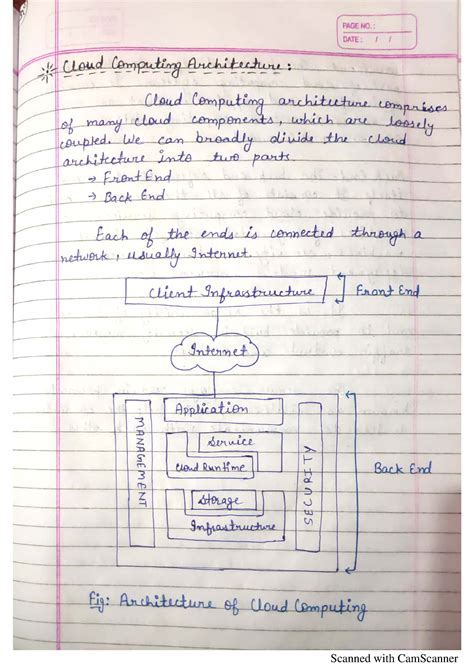 PAGE NO.:
DATE: / /
Cloud Computing Architecture:
Cloud Computing architecture comprises
of many cloud components, which are loosely
coupled. We can broadly divide the cloud
architecture into two parts.
→ Front End
→ Back End
Each of the ends is connected through a
network, usually Internet.
Client Infrastructure
Front End
Internet
Application
MANAGEMENT
Service
SECURITY
Cloud Runtime
Back End
Storage
Infrastructure
Fig: Architecture of Cloud Computing
Scanned with CamScanner